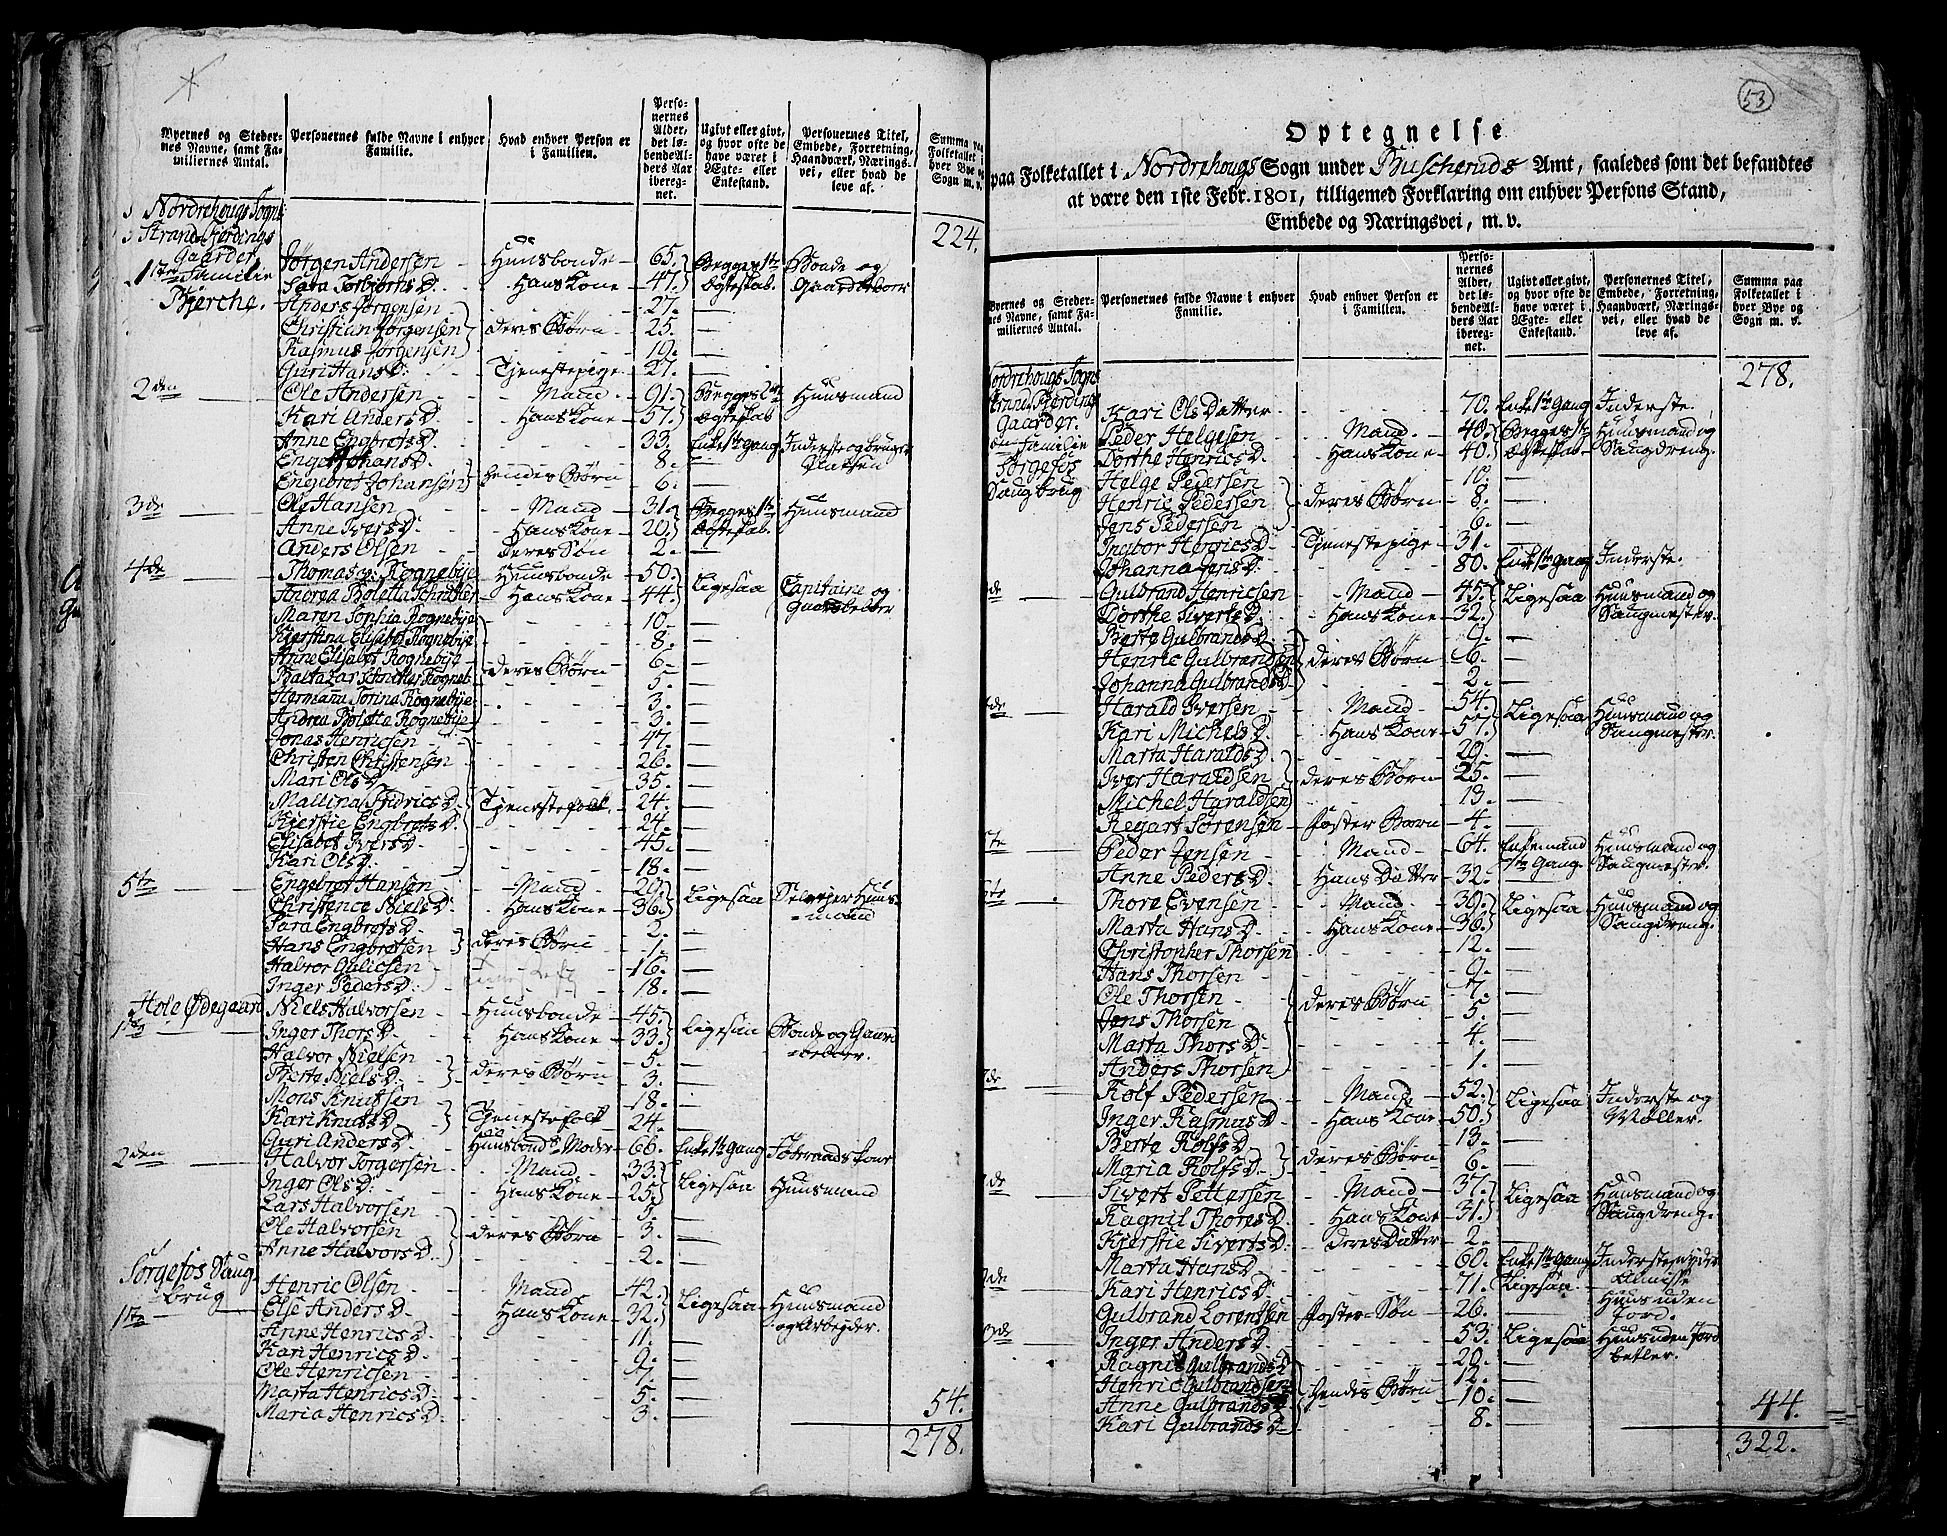 Byernes og Steder-
nes Navne, samt Fa-
miliernes Antal.
Personernes fulde Navne i enhver
Familie.
Hvad enhver Person er
i Familien.
Perso-
nernes
Alder,
det lø-
bende Al-
ders Aar
ibereg-
net.
Ugivt eller givt,
og hvor ofte de
have været i
Ægte- eller
Enkestand.
Personernes Titel,
Embede, Forretning,
Haandværk, Nærings-
vei, eller hvad de
leve af.
Summa paa
Folketallet i
hver Bye og
Sogn m. v.
Nordrehougs Sogns
Strand Fierdings
Gaarder
224.
1ste Familie
Bjerche.
Jørgen Andersen Huusbonde 65. Begges 1te Bonde og
Sara Torbjørns D. Hans Kone 47. Egteskab. Gaardeboer
Anders Jørgensen 27. —
Christian Jørgensen deres Børn 25. —
Rasmus Jørgensen 19. —
Guri Hans D. Tjenestepige 27. —
2den Ole Andersen Mand 91. Begges 2det Huusmand
Kari Anders D. Hans Kone 57. Egteskab
Anne Engbrets D. 33. Enke 1te Gang Inderste og bruger
Johans D. 8. — Pladsen
Engebret Johansen hendes Børn 6. —
3de Ole Hansen Mand 31. Begges 1te Huusmand
Anne Ivers D. Hans Kone 20. Egteskab.
Anders Olsen deres Søn 2. —
4de Thomas v. Rognebije Huusbonde 50. Ligesaa Capitaine og
Andrea Boletta Schnitler Hans Kone 44. Gaardbeboer
Maren Sophia Rognebije 10. —
Kjerstina Elisabet Rognebije 8. —
Anne Elisabet Rognebije 6. —
Baltazar Schnitler Rogneb. deres Børn 5. —
Hermana Torina Rognebije 3. —
Andrea Boletta Rognebije 3. —
Jonas Henricsen 47. —
Christen Christensen 26. —
Mari Ols D. 35. —
Mallina Fridrics D. Tjenestefolk. 24. —
Kjerstie Engbrets D. 24. —
Elisabet Ivers D. 45. —
Kari Ols D. 18. —
5te Engebret Hansen Mand 29. Ligesaa Selvejer Huus-
Christence Niels D. Hans Kone 36. mand
Sara Engbrets D. 2. —
Hans Engbretsen deres Børn 1. —
Halvor Gulicsen 16. —
Inger Peders D. 18. —
Hole Ødegaard
1te Niels Halvorsen Huusbonde 45. Ligesaa Bonde og Gaard-
Inger Thors D. Hans Kone 33. beboer.
Halvor Nielsen 5. —
Berte Niels D. deres Børn 3. —
Mons Knutsen 18. —
Kari Knuts D. Tjenestefolk 24. —
Guri Anders D. Huusbonds Moder 66. Enke 1te Gang Føderaadskone
2den Halvor Torgersen Mand 33. Ligesaa Huusmand
Inger Ols D. Hans Kone 25.
Lars Halvorsen 5. —
Ole Halvorsen deres Børn 3. —
Anne Halvors D. 2. —
Sørgefos Saug-
brug
1te Henric Olsen Mand 42. Ligesaa Huusmand
Else Anders D. Hans Kone 32. og Arbejder.
Anne Henrics D. 11. —
Kari Henrics D. 9. —
Ole Henricsen 7. —
Marta Henrics D. 5. — 54.
Maria Henrics D. 3. —
278.
53
Optegnelse
paa Folketallet i Nordrehougs Sogn under Buscheruds Amt, saaledes som det befandtes
at være den 1ste Febr. 1801, tilligemed Forklaring om enhver Persons Stand,
Embede og Næringsvei, m. v.
Byernes og Steder-
nes Navne, samt Fa-
miliernes Antal.
Personernes fulde Navne i enhver
Familie.
Hvad enhver Person er
i Familien.
Perso-
nernes
Alder,
det lø-
bende Al-
ders Aar
ibereg-
net.
Ugivt eller givt,
og hvor ofte de
have været i
Ægte- eller
Enkestand.
Personernes Titel,
Embede, Forretning,
Haandværk, Nærings-
vei, eller hvad de
leve af.
Summa paa
Folketallet i
hver Bye og
Sogn m. v.
Nordrehougs Sogns
Fierdings
Gaarder.
Familie
Sørgefos
Saugbrug
278.
Kari Ols Datter 70. Enke 1te Gang Inderste.
Peder Helgesen Mand 40. Begges 1te Huusmand og
Dorthe Henrics D. Hans Kone 40. Egteskab Saugdreng.
Helge Pedersen 10. —
Henric Pedersen deres Børn 8. —
Jens Pedersen 6. —
Ingbor Henrics D. Tjenestepige 31. —
Johanna Jens D. 80. Enke 1te Gang Inderste.
Gulbrand Henricsen Mand 45. Ligesaa Huusmand og
Dorthe Siverts D. Hans Kone 32. Saugmester.
Berte Gulbrands D. 9. —
Henric Gulbrandsen deres Børn 6. —
Johanna Gulbrands D. 2. —
Harald Iversen Mand 54. Ligesaa Huusmand og
Kari Michels D. Hans Kone 57. Saugmester.
Marta Haralds D. 29. —
Iver Haraldsen deres Børn 25. —
Michel Haraldsen 13. —
Regart Sørensen Foster Barn 4. —
Peder Jensen Mand 64. Enkemand Huusmand og
1te Gang. Saugmester.
Anne Peders D. Hans Datter 32. —
Thore Evensen Mand 39. Ligesaa Huusmand og
Marta Hans D. Hans Kone 36. Saugdreng.
Christopher Thorsen 12. —
Hans Thorsen 9. —
Ole Thorsen deres Børn 7. —
Jens Thorsen 5. —
Marta Thors D. 4. —
Anders Thorsen 1. —
Rolf Pedersen Mand 52. Ligesaa Inderste og
Inger Rasmus D. Hans Kone 50. Møller.
Berte Rolfs D. 13. —
Maria Rolfs D. deres Børn 6. —
Sivert Pettersen Mand 37. Ligesaa Huusmand og
Ragnil Thores D. Hans Kone 31. Saugdreng.
Kjerstie Siverts D. deres Datter 2. —
Marta Hans D. 60. Enke 1te Gang Inderste nyder
Almisse
Kari Henrics D. 71. Ligesaa Huus uden
Gulbrand Lorentsen Foster Søn 26. — Jord.
Inger Anders D. 53. Ligesaa Huus uden Jord
Ragnil Gulbrands D. 20. — betler.
Henric Gulbrandsen 12. —
Anne Gulbrands D. hendes Børn 10. — 44.
Kari Gulbrands D. 8. —
322.